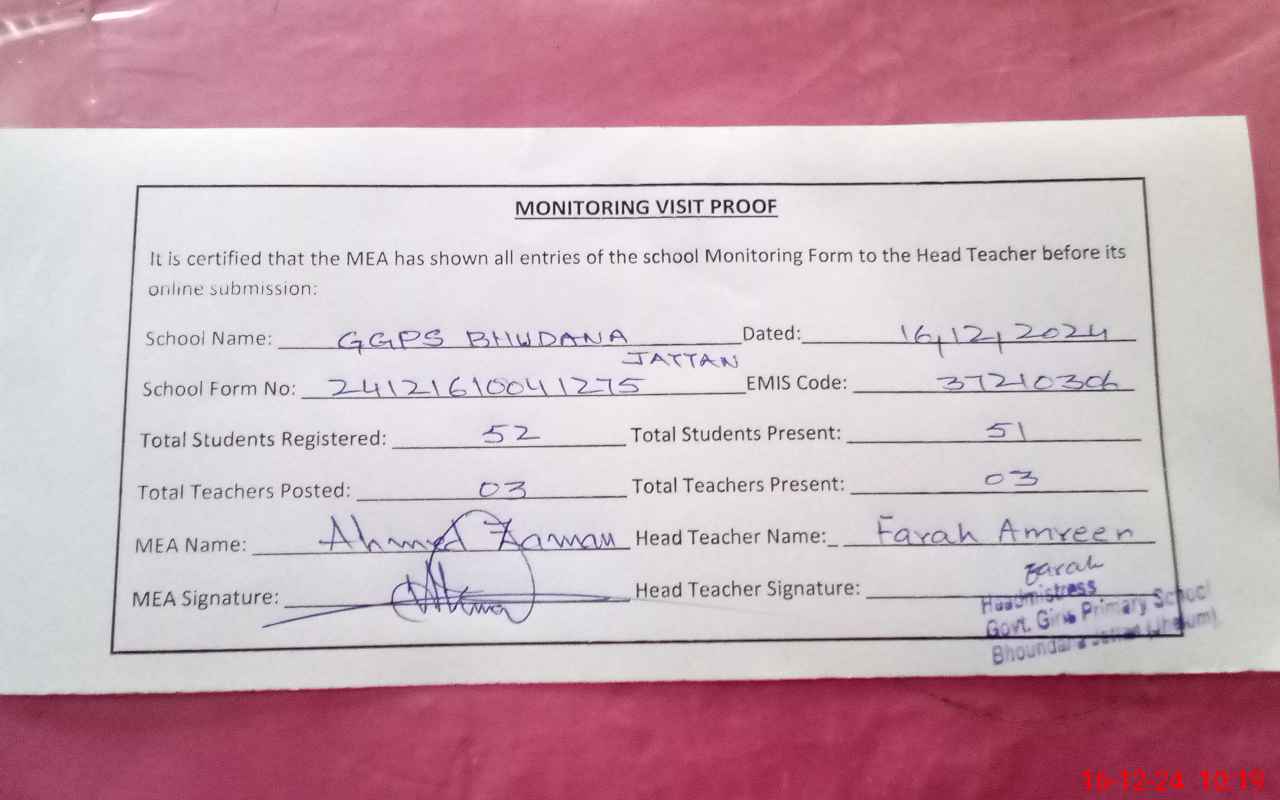 MONITORING VISIT PROOF
It is certified that the MEA has shown all entries of the school Monitoring Form to the Head Teacher before its
online submission:
School Name: GGPS BHUDANA JATTAN Dated: 16,12,2024
School Form No: 24121610041275 EMIS Code: 37210306
Total Students Registered: 52 Total Students Present: 51
Total Teachers Posted: 03 Total Teachers Present: 03
MEA Name: Ahmed Zaman Head Teacher Name: Farah Amreen
MEA Signature: Head Teacher Signature: Farah
Headmistress
Govt. Girls Primary School
Bhoundana Jattan (Jhelum)
16-12-24 10:19